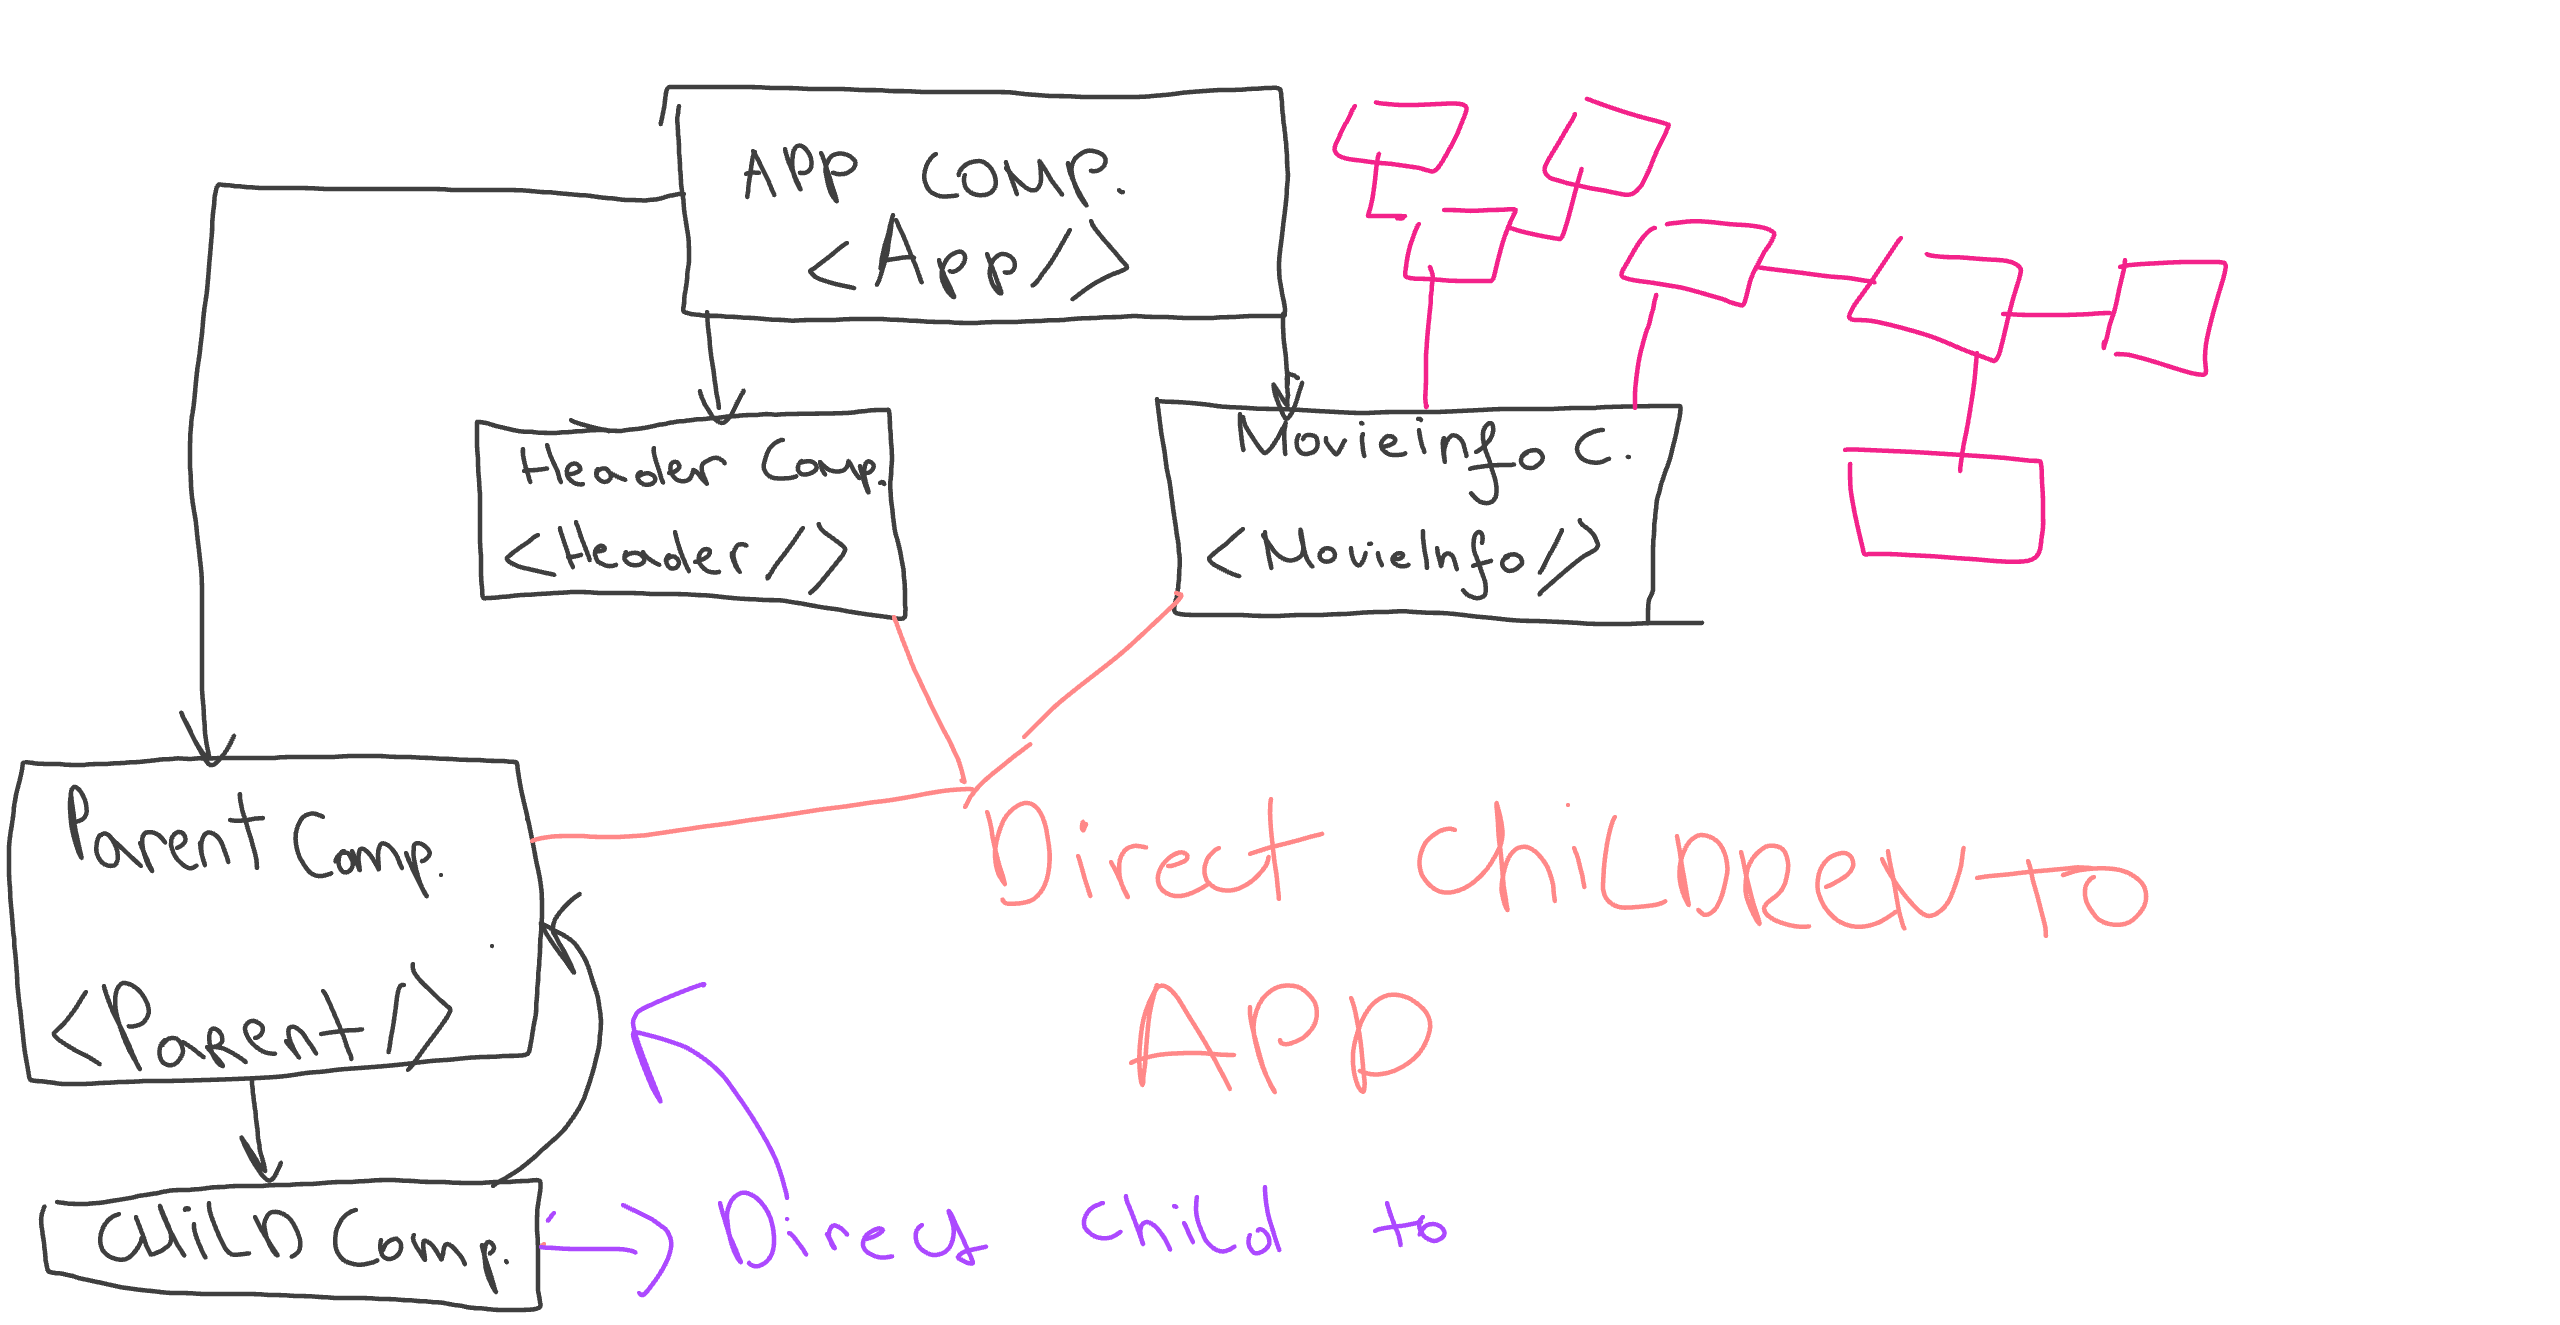 APP COMP.
<App/>
Header Comp.
<Header/>
Movieinfo C.
<MovieInfo/>
Parent Comp.
<Parent/>
Direct CHiLDREN TO
APP
CHiLD Comp.
Direct child to